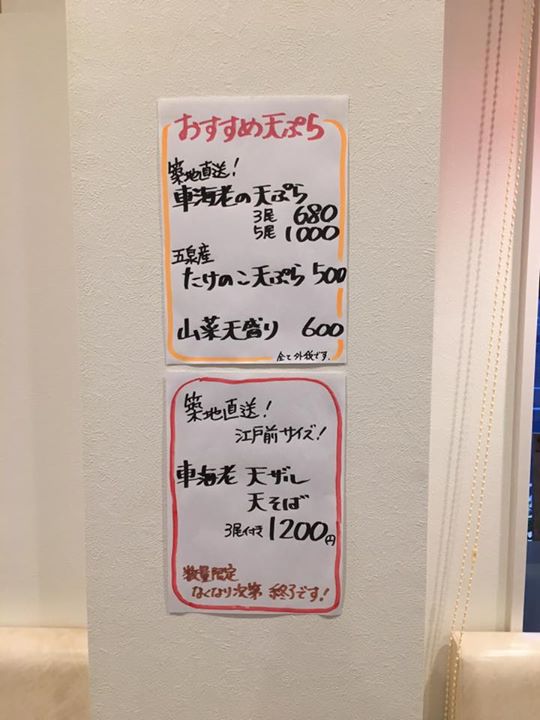 おすすめ天ぷら
築地直送!
車海老の天ぷら
3尾 680
5尾 1000
五泉産
たけのこ天ぷら 500
山菜天盛り 600
全て外税です.
築地直送!
江戸前サイズ!
車海老 天ザル
天そば
3尾付き 1200円
数量限定
なくなり次第 終了です!